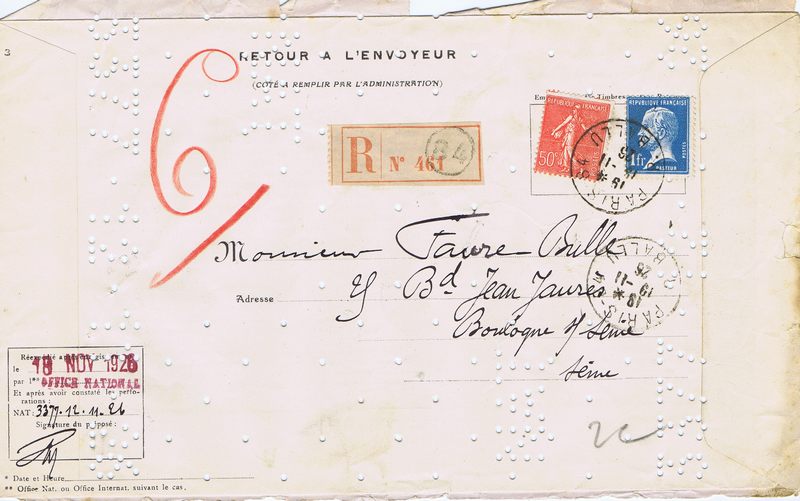 3
RETOUR A L'ENVOYEUR
(COTÉ A REMPLIR PAR L'ADMINISTRATION)
Timbres
R N° 461
84
RÉPUBLIQUE FRANÇAISE
50c
RÉPUBLIQUE FRANÇAISE
1fr
POSTES
PASTEUR
PARIS 84
R. BALLU
19 -11
25
PARIS
BALLU
19 -11
25
6
Monsieur Faure-Bulle
Adresse
Bd Jean Jaurès
Boulogne s/ Seine
Seine
Réexpédié
le 18 NOV 1926
par l'** OFFICE NATIONAL
Et après avoir constaté les perfo-
rations :
NAT: 3377-12.11.26
Signature du préposé :
* Date et Heure
** Office Nat. ou Office Internat. suivant le cas.